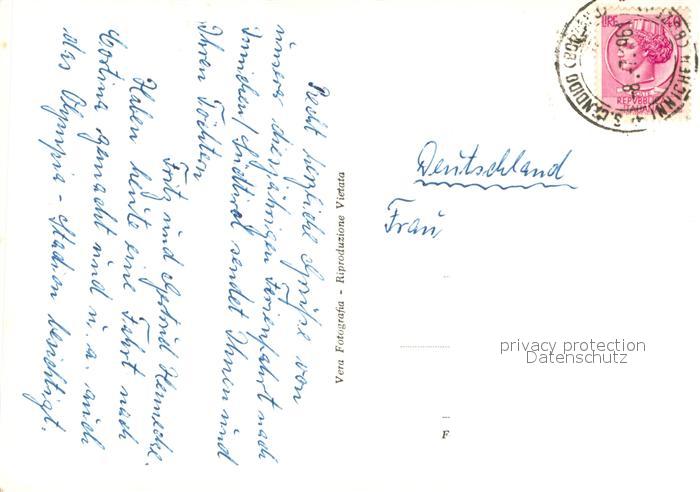 Recht herzliche Grüße von
unserer diesjährigen Ferienfahrt nach
Innichen/Südtirol sendet Ihnen und
Ihren Töchtern
Fritz und Gertrud Hennecke.
Haben heute eine Fahrt nach
Cortina gemacht und u. a. auch
das Olympia-Stadion besichtigt.
Vera Fotografia - Riproduzione Vietata
Deutschland
Frau
privacy protection
Datenschutz
F
LIRE
REPVBBLICA
ITALIANA
S. CANDIDO
INNICHEN